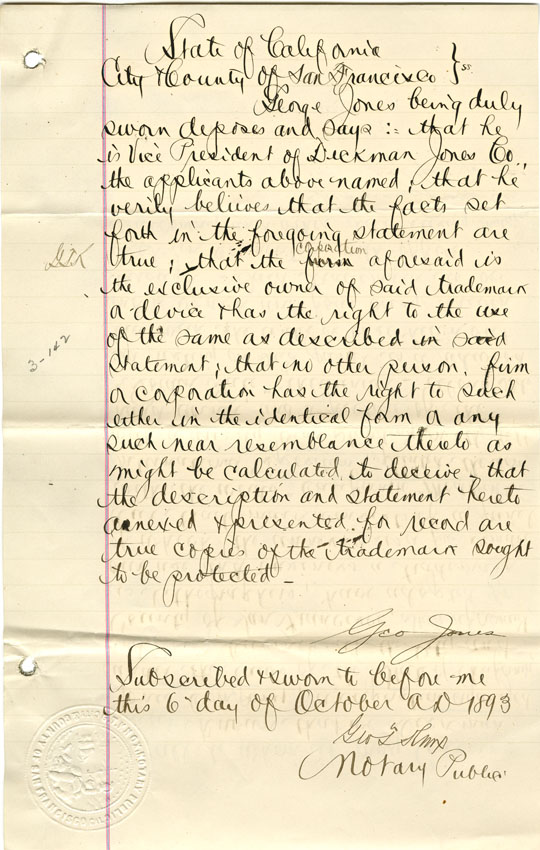 State of California
City & County of San Francisco } ss
George Jones being duly
sworn deposes and says :- that he
is Vice President of Dickman Jones Co.,
the applicants above named; that he
verily believes that the facts set
forth in the foregoing statement are
true; that the firm corporation aforesaid is
the exclusive owner of said trademark
or device & has the right to the use
of the same as described in said
statement; that no other person, firm
or corporation has the right to such
either in the identical form or any
such near resemblance thereto as
might be calculated to deceive, that
the description and statement hereto
annexed & presented for record are
true copies of the trademark sought
to be protected -
Geo Jones
Subscribed & sworn to before me
this 6 day of October AD 1893
Geo T Knox
Notary Public
3-142